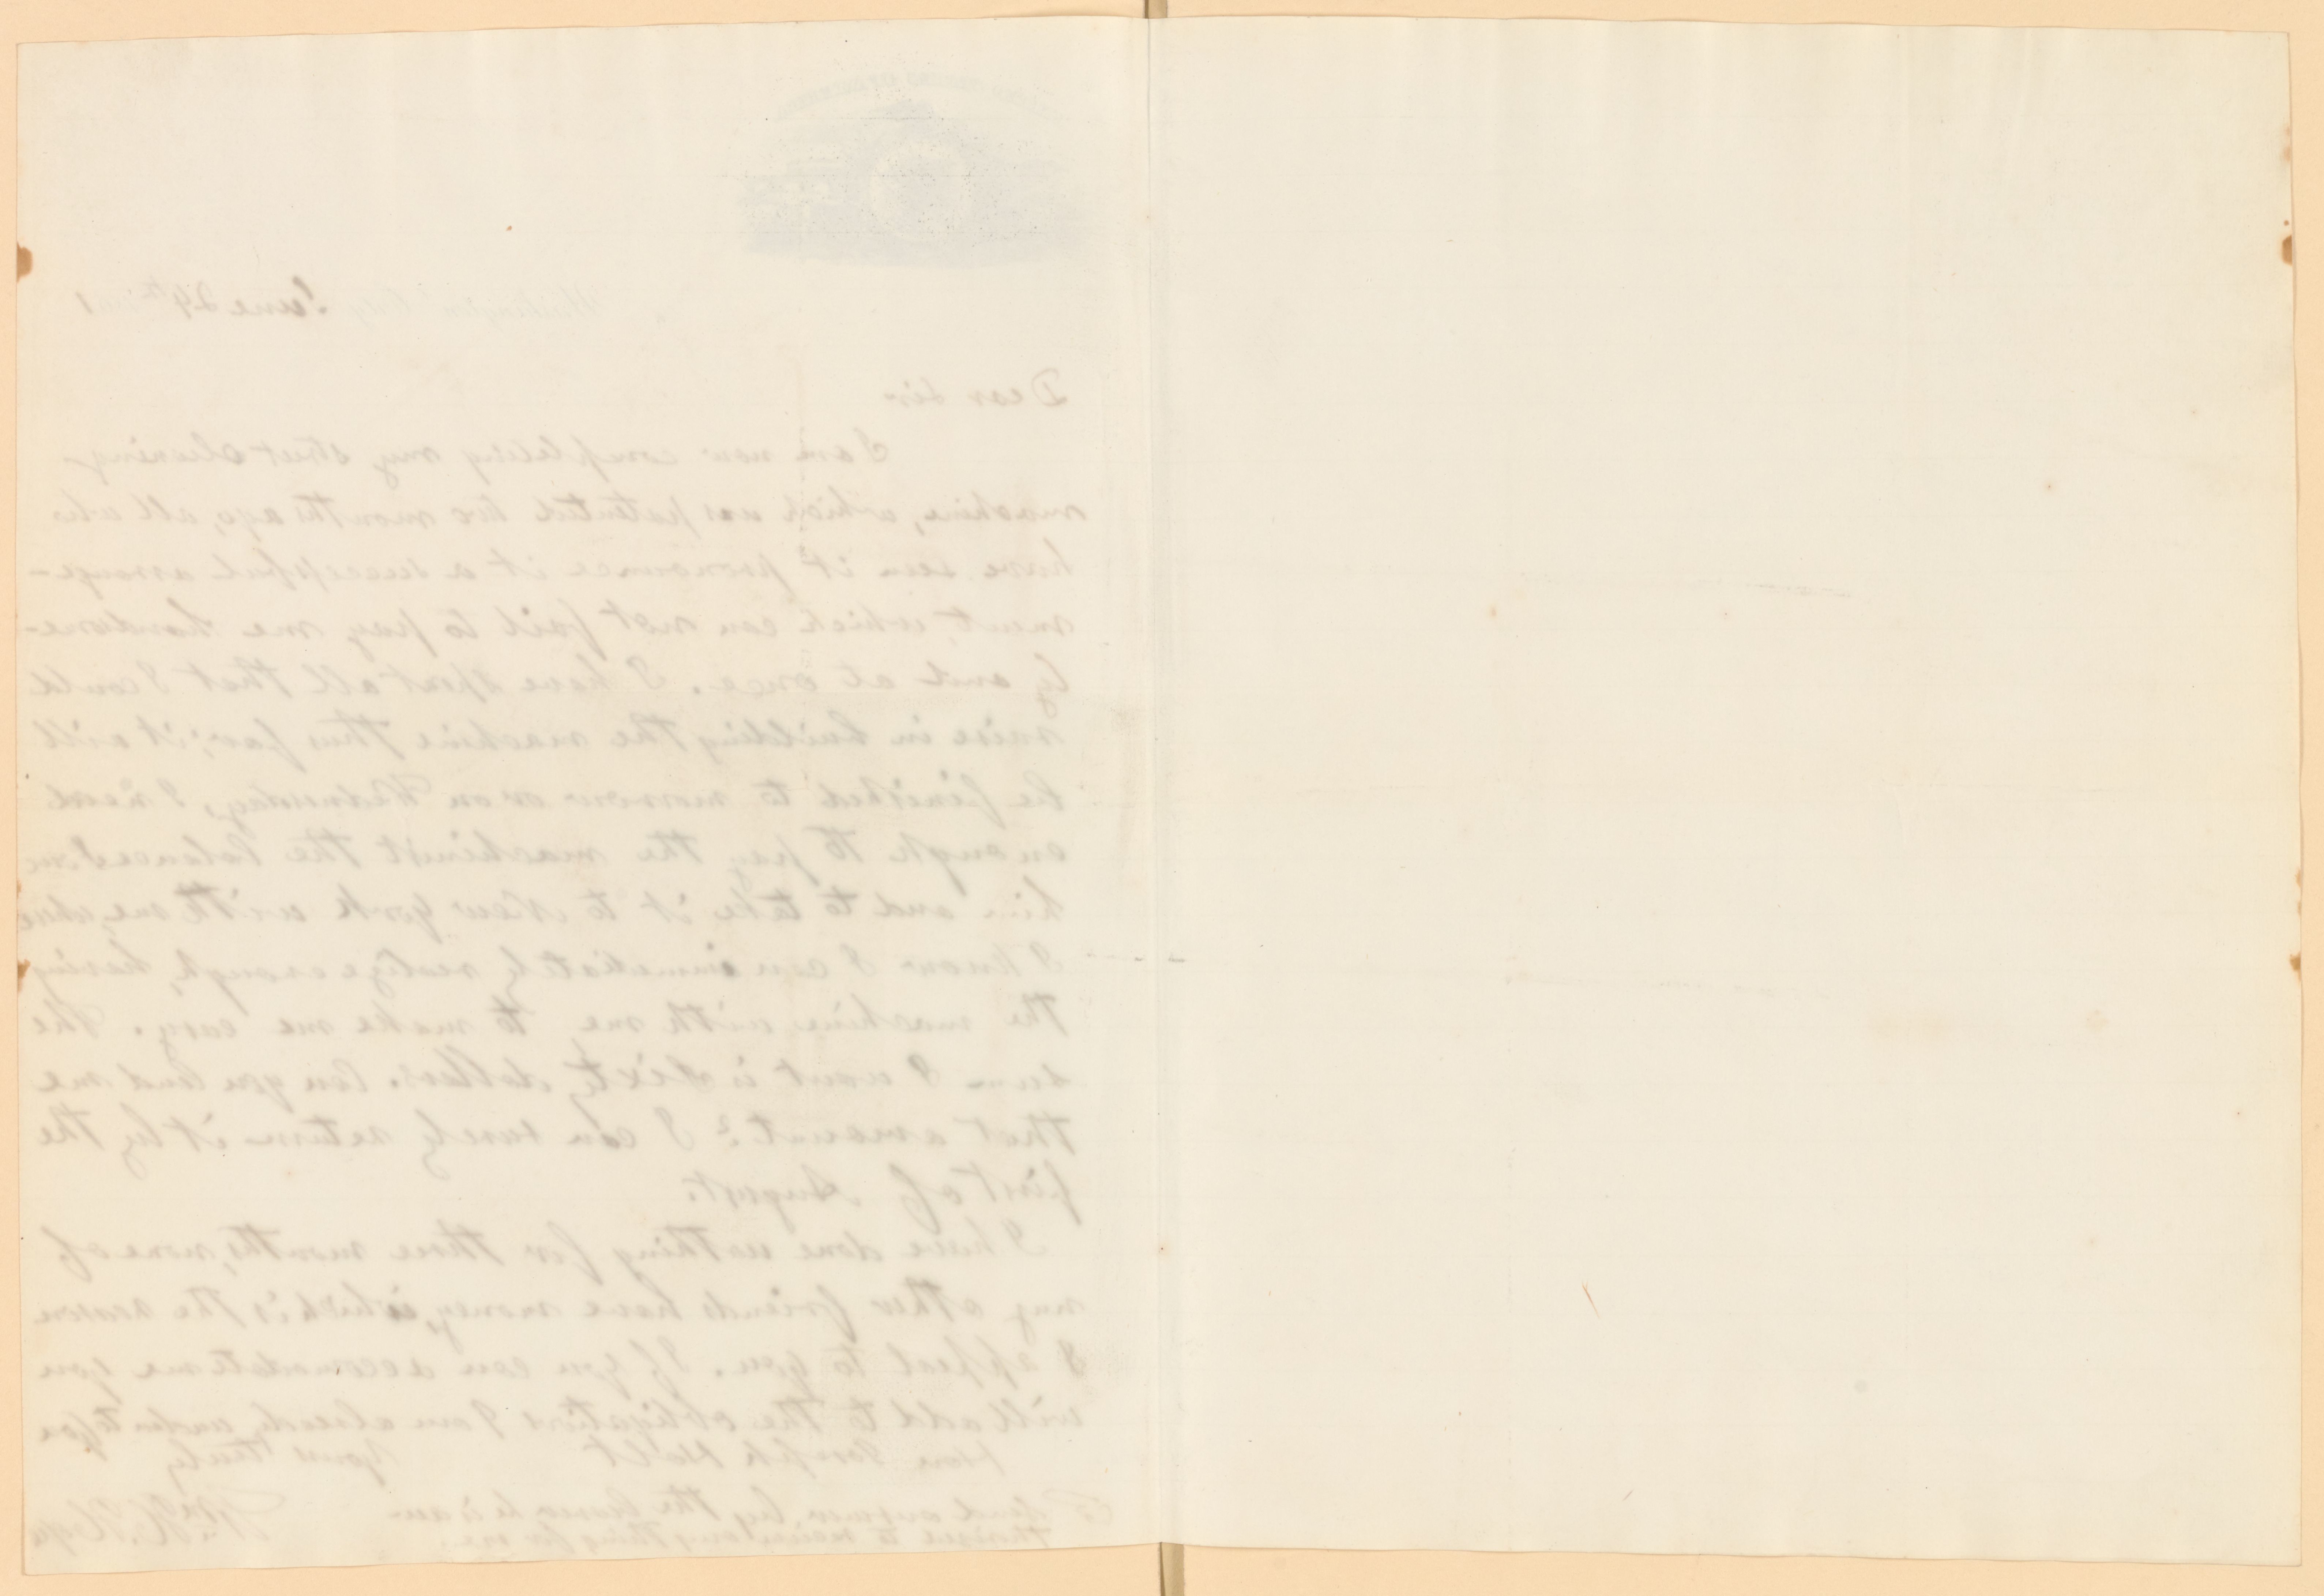 June 24th
Dear Sir
I am now completing my street cleaning
machine, which was patented two months ago, all who
have seen it pronounce it a successful arrange-
ment, which can not fail to pay me handsome-
ly and at once. I have spent all that I could
raise in building the machine thus far; it will
be finished to morrow or on Wednesday, I need
enough to pay the machinist the balance due
him and to take it to New York with me, where
I know I can immediately realize enough, having
the machine with me, to make me easy. The
sum I want is sixty dollars. Can you lend me
that amount? I can surely return it by the
first of August.
I have done nothing for three months, none of
my other friends have money, which is the reason
I appeal to you. If you can accomodate me you
will add to the obligations I am already under to you
Hon Joseph Holt Yours truly
Send answer by the bearer he is au-
thorized to receive anything for me.